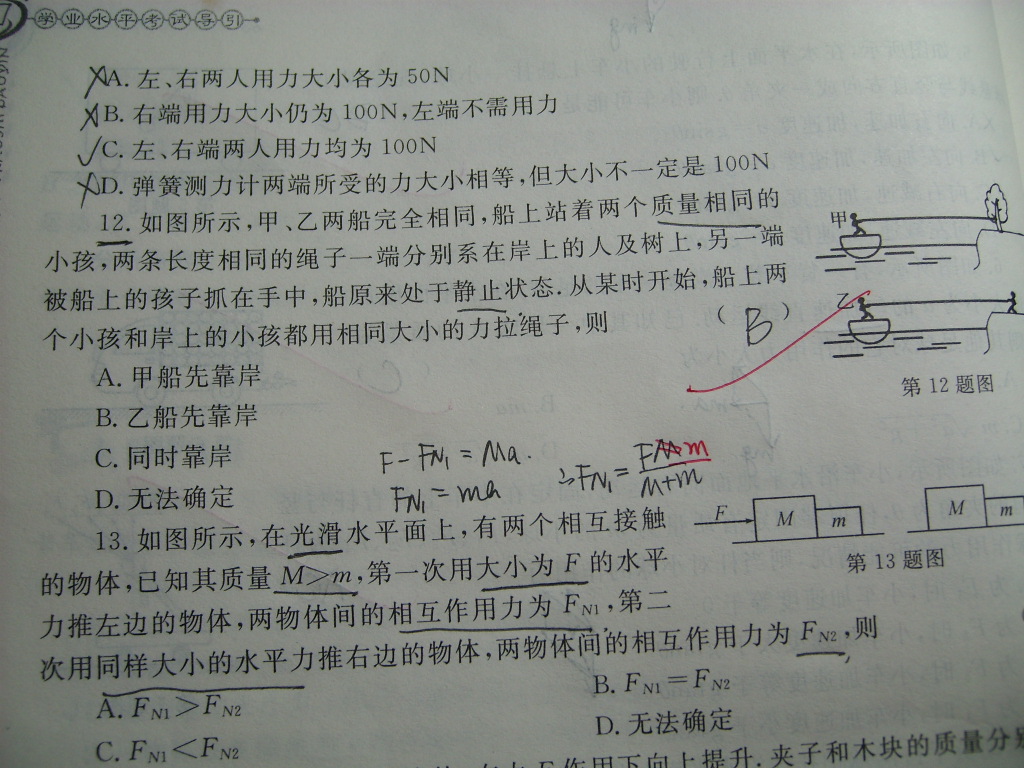 学业水平考试导引
A. 左、右两人用力大小各为 50N
B. 右端用力大小仍为 100N,左端不需用力
C. 左、右端两人用力均为 100N
D. 弹簧测力计两端所受的力大小相等,但大小不一定是 100N
12. 如图所示,甲、乙两船完全相同,船上站着两个质量相同的
小孩,两条长度相同的绳子一端分别系在岸上的人及树上,另一端
被船上的孩子抓在手中,船原来处于静止状态. 从某时开始,船上两
个小孩和岸上的小孩都用相同大小的力拉绳子,则 ( B )
甲
乙
第 12 题图
A. 甲船先靠岸
B. 乙船先靠岸
C. 同时靠岸
D. 无法确定
F-FN1=Ma.
FN1=ma
∴FN1=
M+m
13. 如图所示,在光滑水平面上,有两个相互接触
的物体,已知其质量 M>m,第一次用大小为 F 的水平
力推左边的物体,两物体间的相互作用力为 FN1,第二
次用同样大小的水平力推右边的物体,两物体间的相互作用力为 FN2,则
F M m
M m
第 13 题图
A. FN1>FN2
B. FN1=FN2
C. FN1<FN2
D. 无法确定
作用下向上提升. 夹子和木块的质量分别